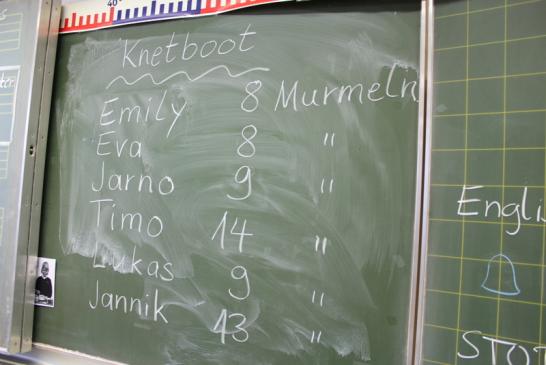 40
Knetboot
Emily 8 Murmeln
Eva 8 "
Jarno 9 "
Timo 14 "
Lukas 9 "
Jannik 13 "
Engli
STOT